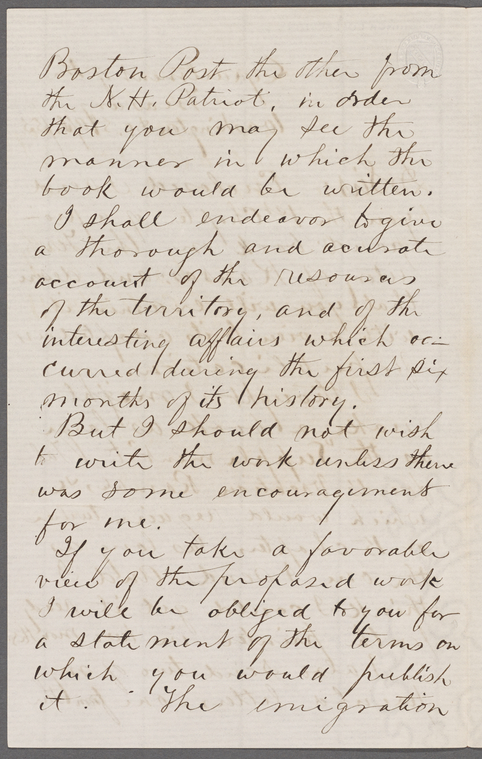 Boston Post the other from
the N.H. Patriot, in order
that you may see the
manner in which the
book would be written.
I shall endeavor to give
a thorough and acurate
account of the resources
of the territory, and of the
interesting affairs which oc-
curred during the first six
months of its history.
But I should not wish
to write the work unless there
was some encouragement
for me.
If you take a favorable
view of the proposed work
I will be obliged to you for
a statement of the terms on
which you would publish
it. The emigration